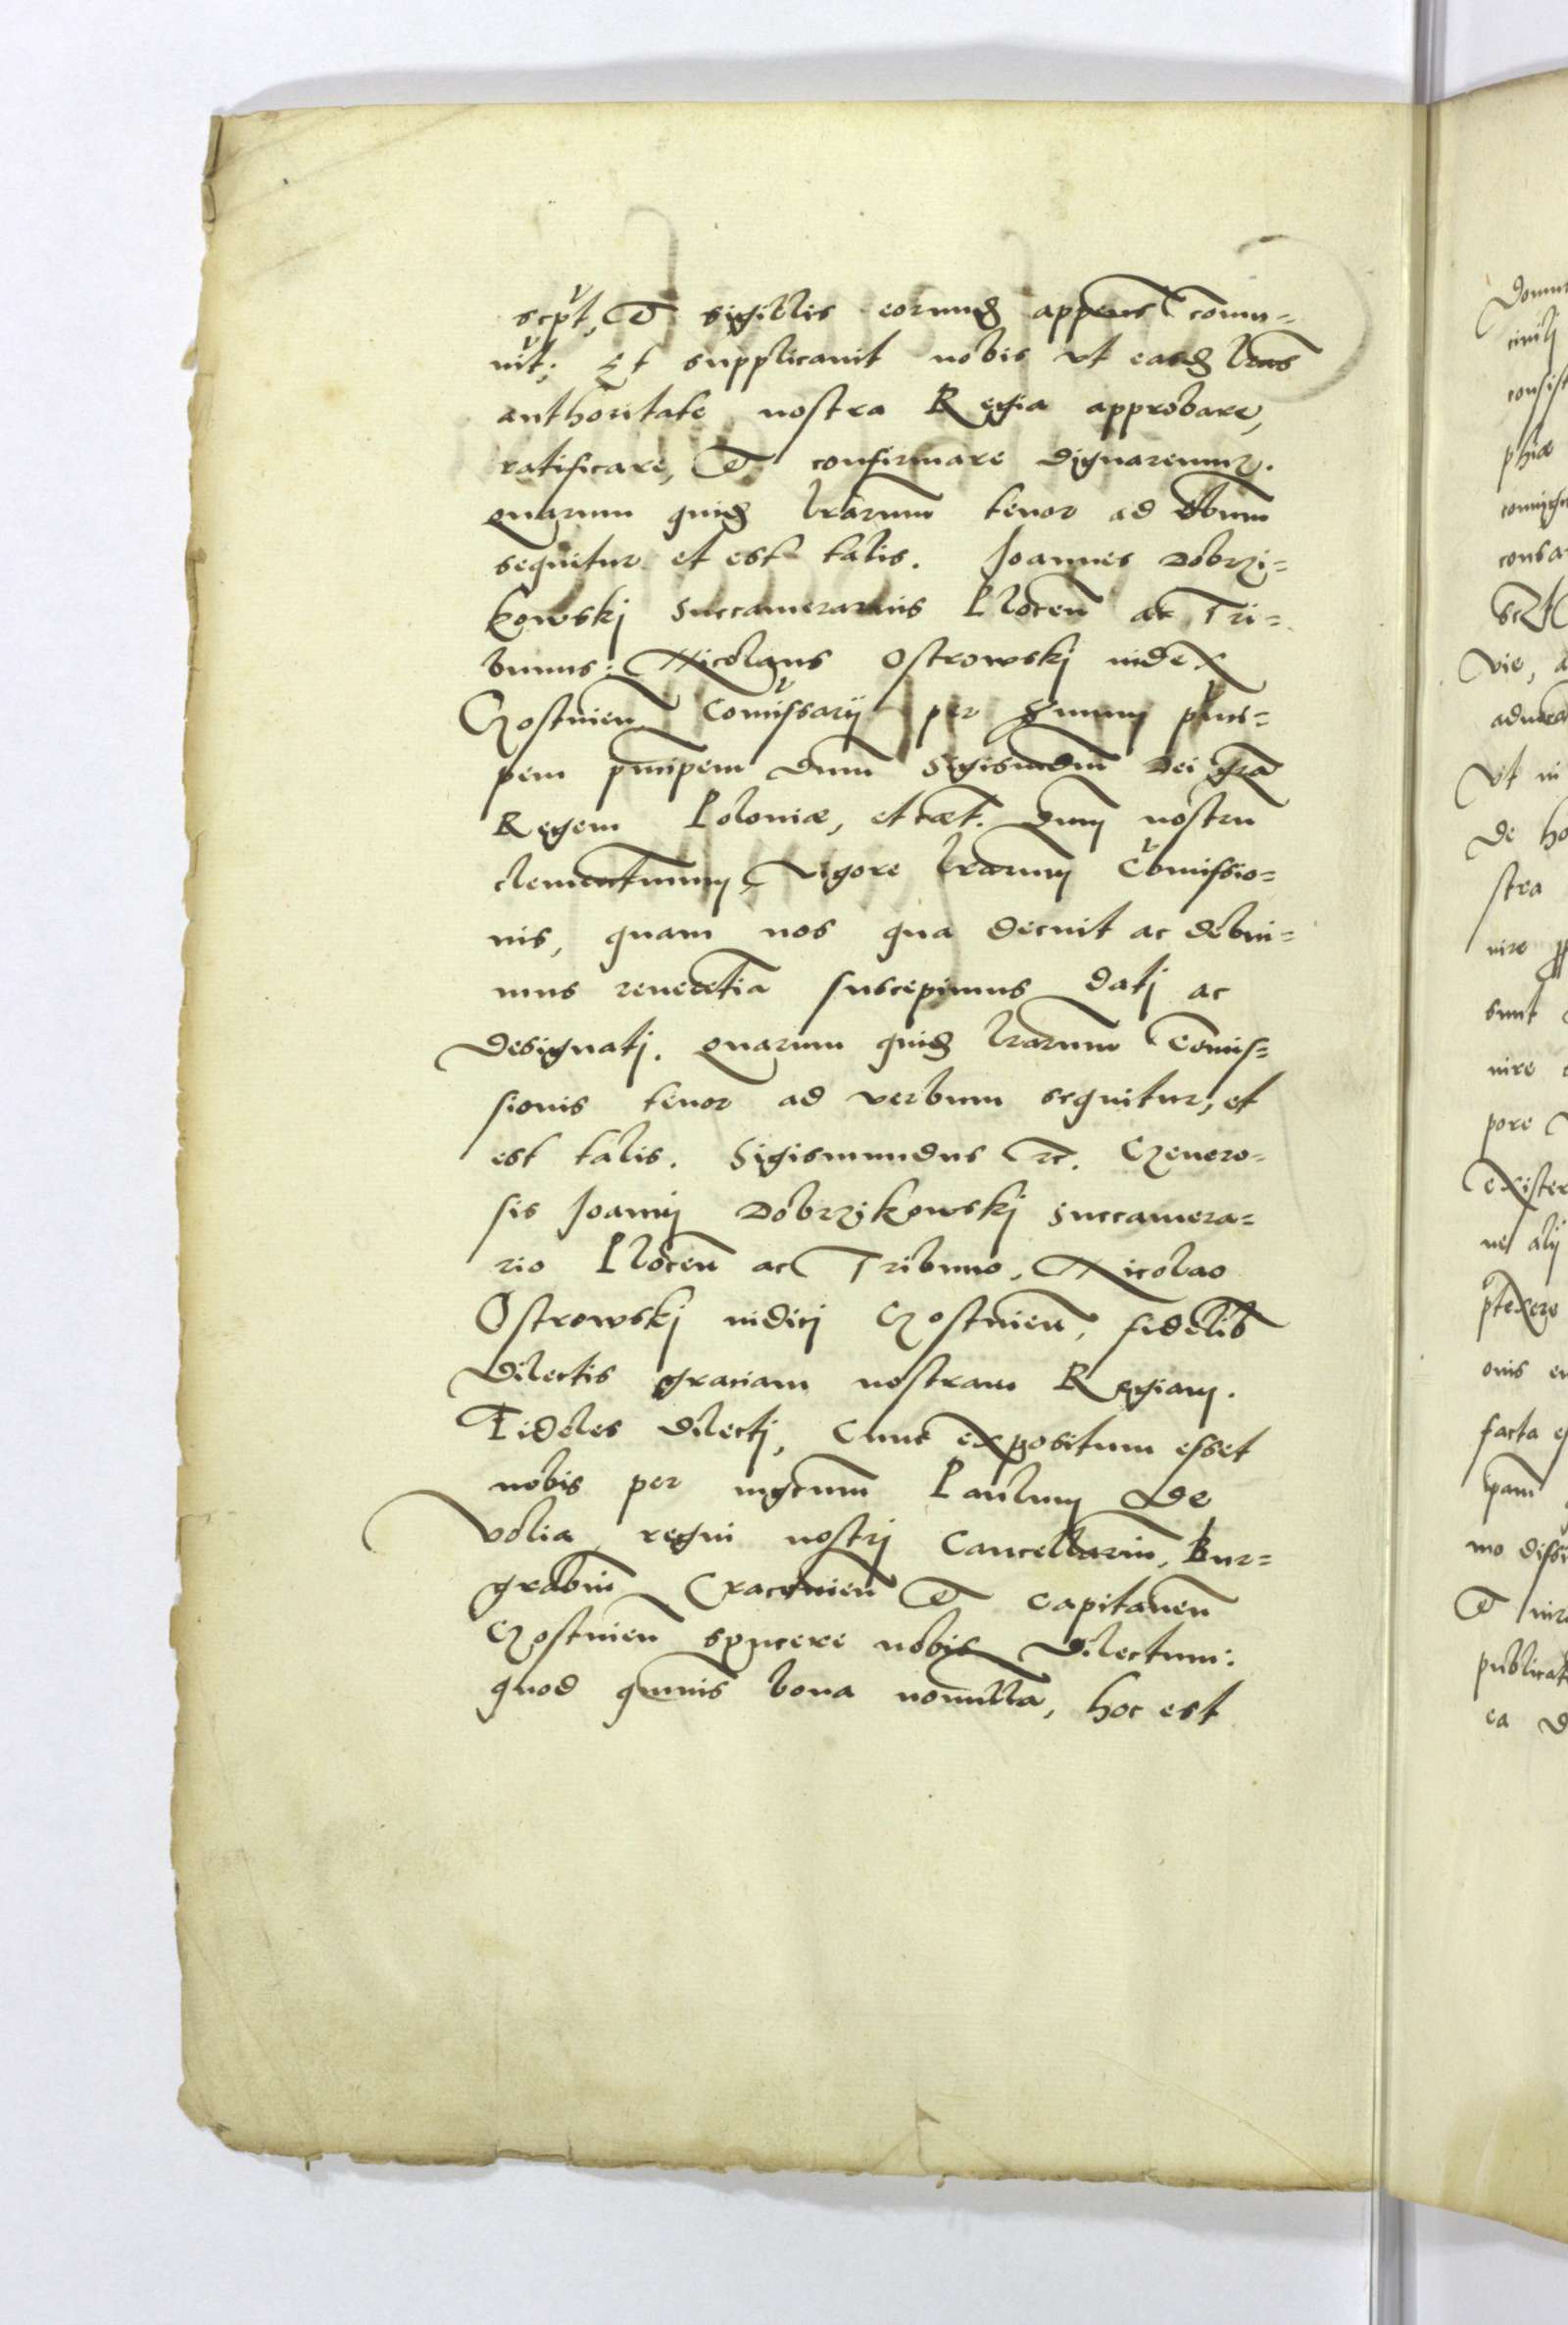 scpt, et sigillis eorund appens comu=
nit; Et supplicauit nobis vt easd lras
authoritate nostra Regia approbare,
ratificare, et confirmare dignaremur.
quarum quid lrarum tenor ad vbum
sequitur et est talis. Joannes Dobrzi=
kowskj Succamerarius Plocen ac Tri=
bunus: Nicolaus Ostrowskj iudex
Gostinien Comissarij per Smum prin=
pem principem dnm Sigismdm Dei gra
Regem Poloniæ, et cæt. dnm nostru
clementimum, vigore lrarum Comissio=
nis, quam nos qua decuit ac debui=
mus reueretia suscepimus datj ac
designatj. quarum quid lrarum Comis=
sionis tenor ad verbum sequitur, et
est talis. Sigismundus etc. Genero=
sis Joannj Dobrzikowskj Succamera=
rio Plocen ac Tribuno, Nicolao
Ostrowskj iudicj Gostinien, fidelib
dilectis gratiam nostram Regiam.
Fideles dilectj, Cum expositum esset
nobis per mgcum Paulum de
Volia regni nostrj Cancellariu, Bur=
grabiu Cracouien et Capitaneu
Gostinien syncere nobis dilectum:
quod quis bona nonulla, hoc est
Domin
ciuilj
consist
phia
consa
vie, a
vt in
de ho
stra
nire
sunt
nire
pore
existe
uel alij
onis
facta e
mo diss
et
publicat
ea d